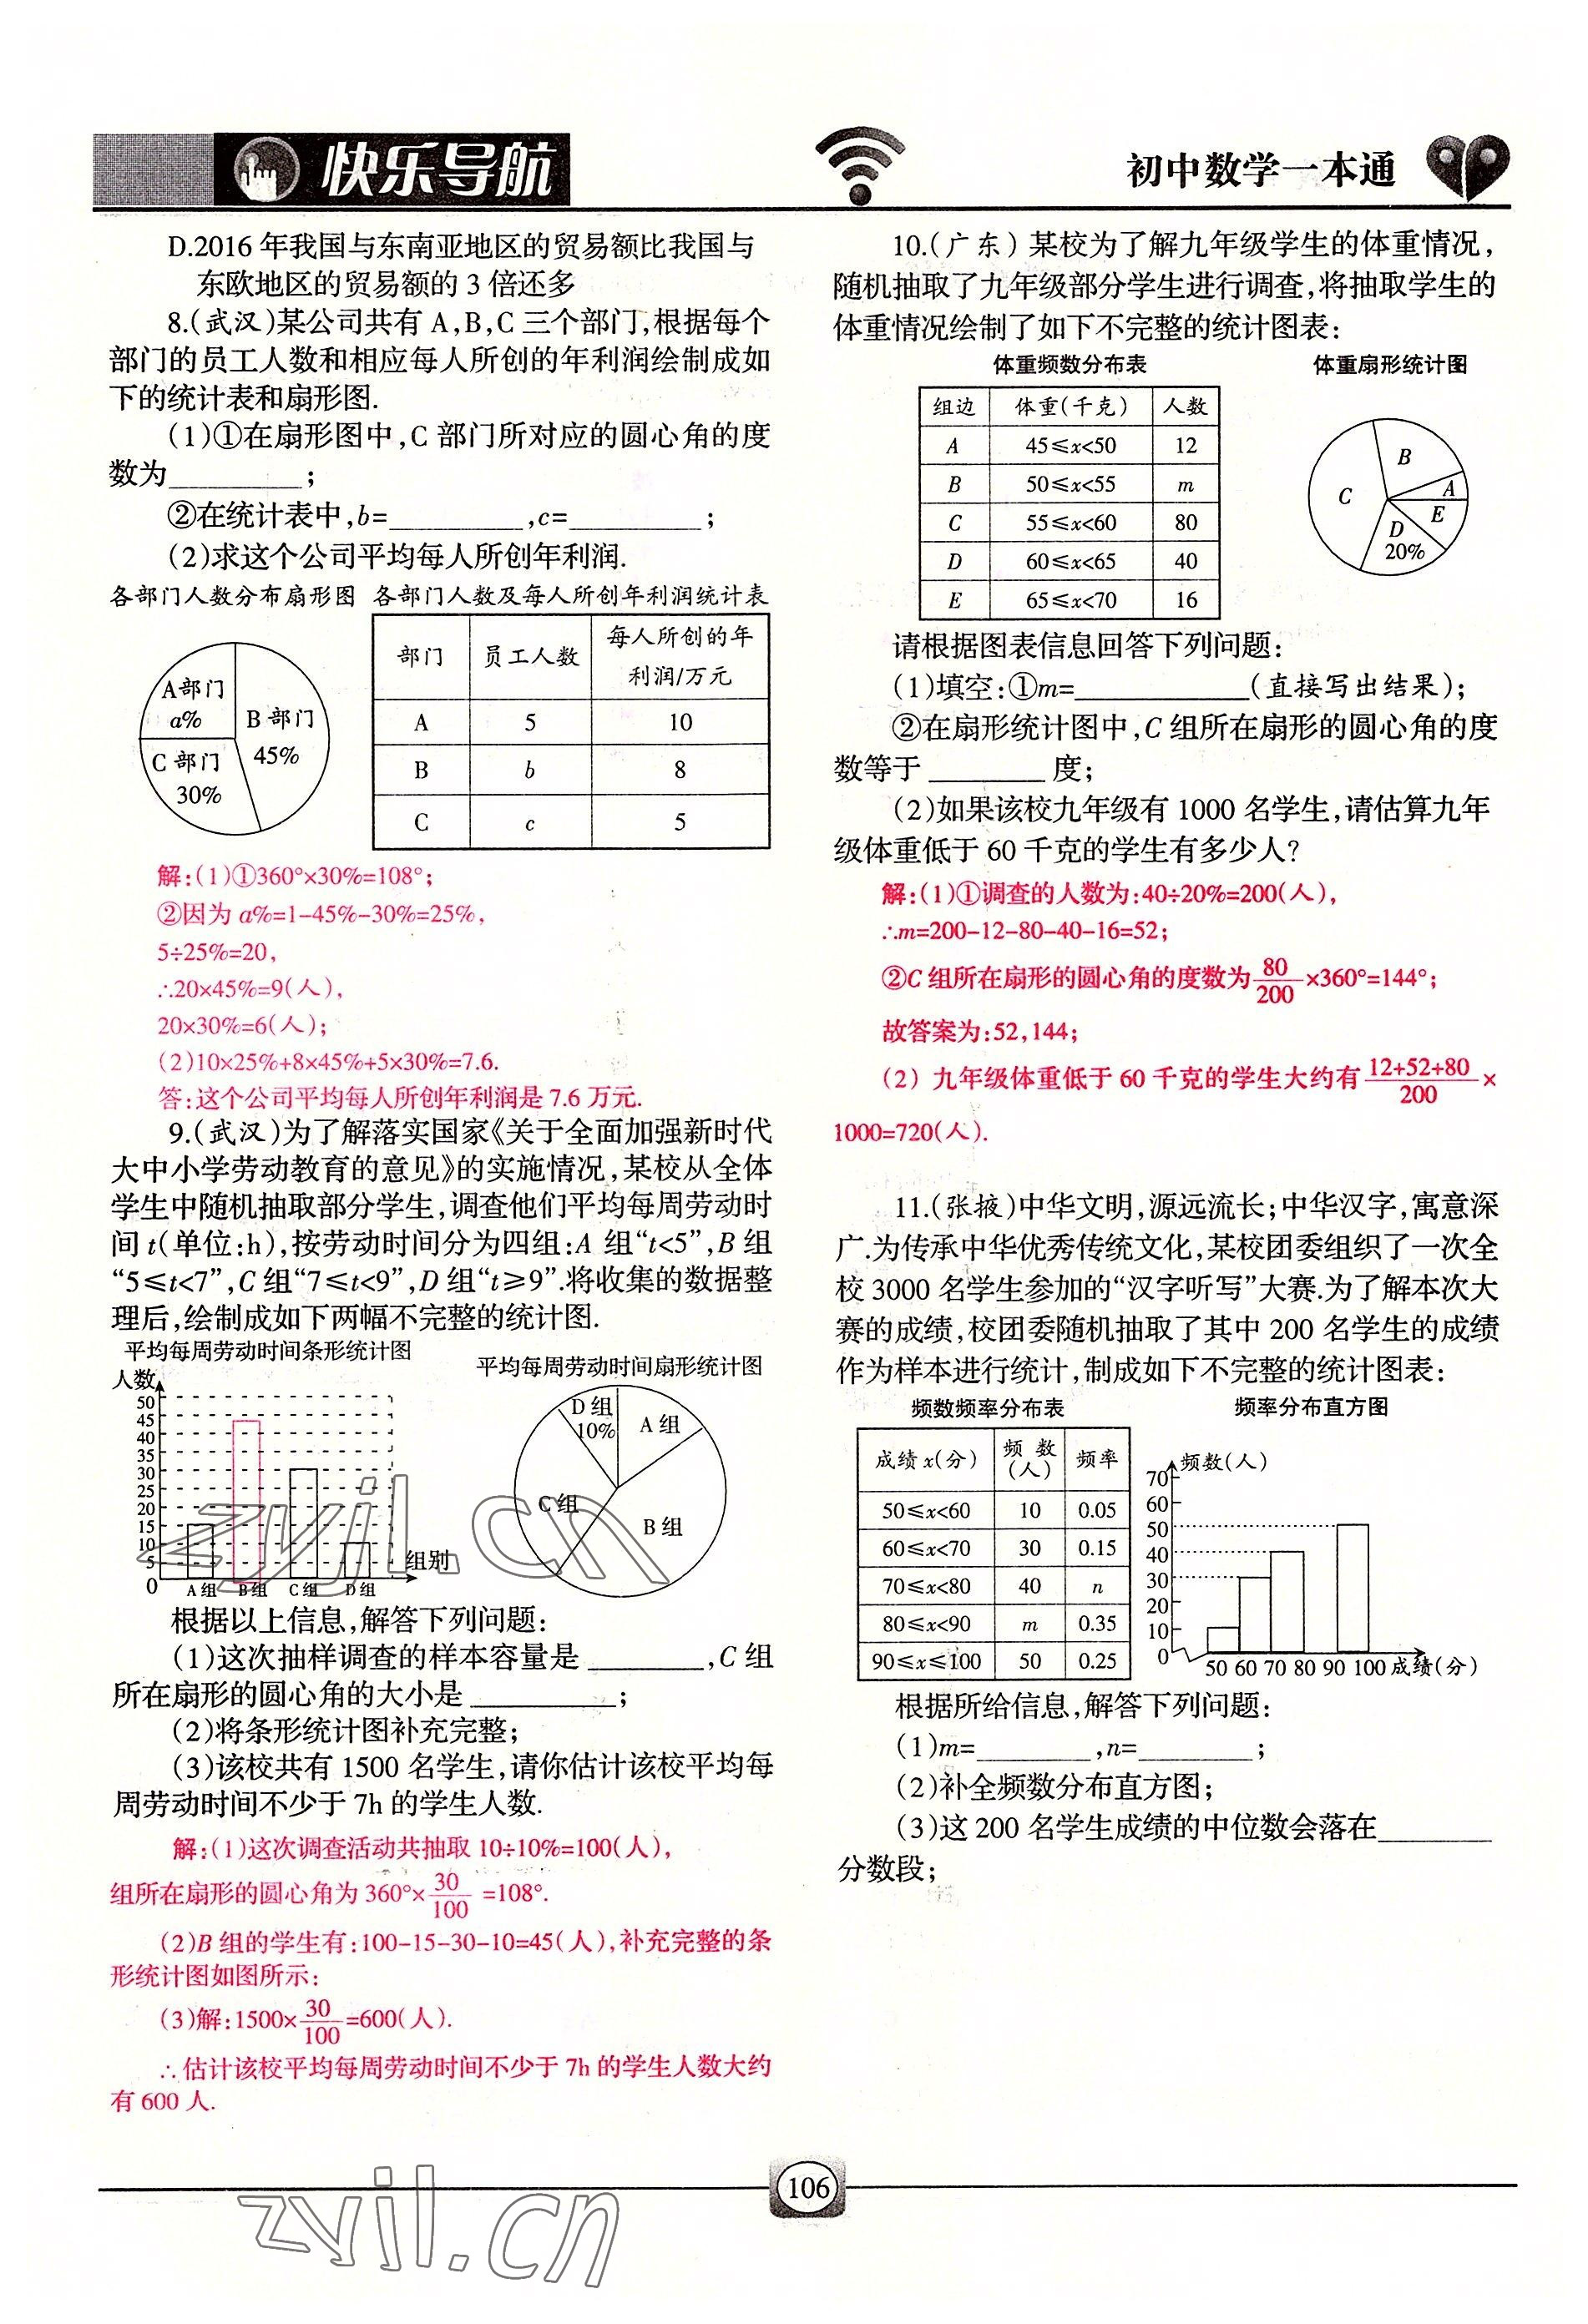 快乐导航
初中数学一本通
D.2016 年我国与东南亚地区的贸易额比我国与
东欧地区的贸易额的 3 倍还多
8.(武汉)某公司共有 A,B,C 三个部门,根据每个
部门的员工人数和相应每人所创的年利润绘制成如
下的统计表和扇形图.
(1)①在扇形图中,C 部门所对应的圆心角的度
数为________;
②在统计表中,b=________,c=________;
(2)求这个公司平均每人所创年利润.
各部门人数分布扇形图
A部门
a%
B 部门
45%
C 部门
30%
各部门人数及每人所创年利润统计表
部门 员工人数 每人所创的年利润/万元
A 5 10
B b 8
C c 5
解:(1)①360°×30%=108°;
②因为 a%=1-45%-30%=25%,
5÷25%=20,
∴20×45%=9(人),
20×30%=6(人);
(2)10×25%+8×45%+5×30%=7.6.
答:这个公司平均每人所创年利润是 7.6 万元.
9.(武汉)为了解落实国家《关于全面加强新时代
大中小学劳动教育的意见》的实施情况,某校从全体
学生中随机抽取部分学生,调查他们平均每周劳动时
间 t(单位:h),按劳动时间分为四组:A 组“t<5”,B 组
“5≤t<7”,C 组“7≤t<9”,D 组“t≥9”.将收集的数据整
理后,绘制成如下两幅不完整的统计图.
平均每周劳动时间条形统计图
人数
50
45
40
35
30
25
20
15
10
5
0
A 组 B 组 C 组 D 组
组别
平均每周劳动时间扇形统计图
D 组
10%
A 组
C 组
B 组
根据以上信息,解答下列问题:
(1)这次抽样调查的样本容量是 ________,C 组
所在扇形的圆心角的大小是 ________;
(2)将条形统计图补充完整;
(3)该校共有 1500 名学生,请你估计该校平均每
周劳动时间不少于 7h 的学生人数.
解:(1)这次调查活动共抽取 10÷10%=100(人),
组所在扇形的圆心角为 360°×30/100 =108°.
(2)B 组的学生有:100-15-30-10=45(人),补充完整的条
形统计图如图所示:
(3)解:1500×30/100=600(人).
∴估计该校平均每周劳动时间不少于 7h 的学生人数大约
有 600 人.
10.(广东) 某校为了解九年级学生的体重情况,
随机抽取了九年级部分学生进行调查,将抽取学生的
体重情况绘制了如下不完整的统计图表:
体重频数分布表
组边 体重(千克) 人数
A 45≤x<50 12
B 50≤x<55 m
C 55≤x<60 80
D 60≤x<65 40
E 65≤x<70 16
体重扇形统计图
B
A
C
E
D
20%
请根据图表信息回答下列问题:
(1)填空:①m=________(直接写出结果);
②在扇形统计图中,C 组所在扇形的圆心角的度
数等于 ________ 度;
(2)如果该校九年级有 1000 名学生,请估算九年
级体重低于 60 千克的学生有多少人?
解:(1)①调查的人数为:40÷20%=200(人),
∴m=200-12-80-40-16=52;
②C 组所在扇形的圆心角的度数为80/200×360°=144°;
故答案为:52,144;
(2) 九年级体重低于 60 千克的学生大约有12+52+80/200×
1000=720(人).
11.(张掖)中华文明,源远流长;中华汉字,寓意深
广.为传承中华优秀传统文化,某校团委组织了一次全
校 3000 名学生参加的“汉字听写”大赛.为了解本次大
赛的成绩,校团委随机抽取了其中 200 名学生的成绩
作为样本进行统计,制成如下不完整的统计图表:
频数频率分布表
成绩 x(分) 频数(人) 频率
50≤x<60 10 0.05
60≤x<70 30 0.15
70≤x<80 40 n
80≤x<90 m 0.35
90≤x≤100 50 0.25
频率分布直方图
频数(人)
70
60
50
40
30
20
10
0
50 60 70 80 90 100 成绩(分)
根据所给信息,解答下列问题:
(1)m=________,n=________;
(2)补全频数分布直方图;
(3)这 200 名学生成绩的中位数会落在________
分数段;
106
zyjl.cn
zyjl.cn